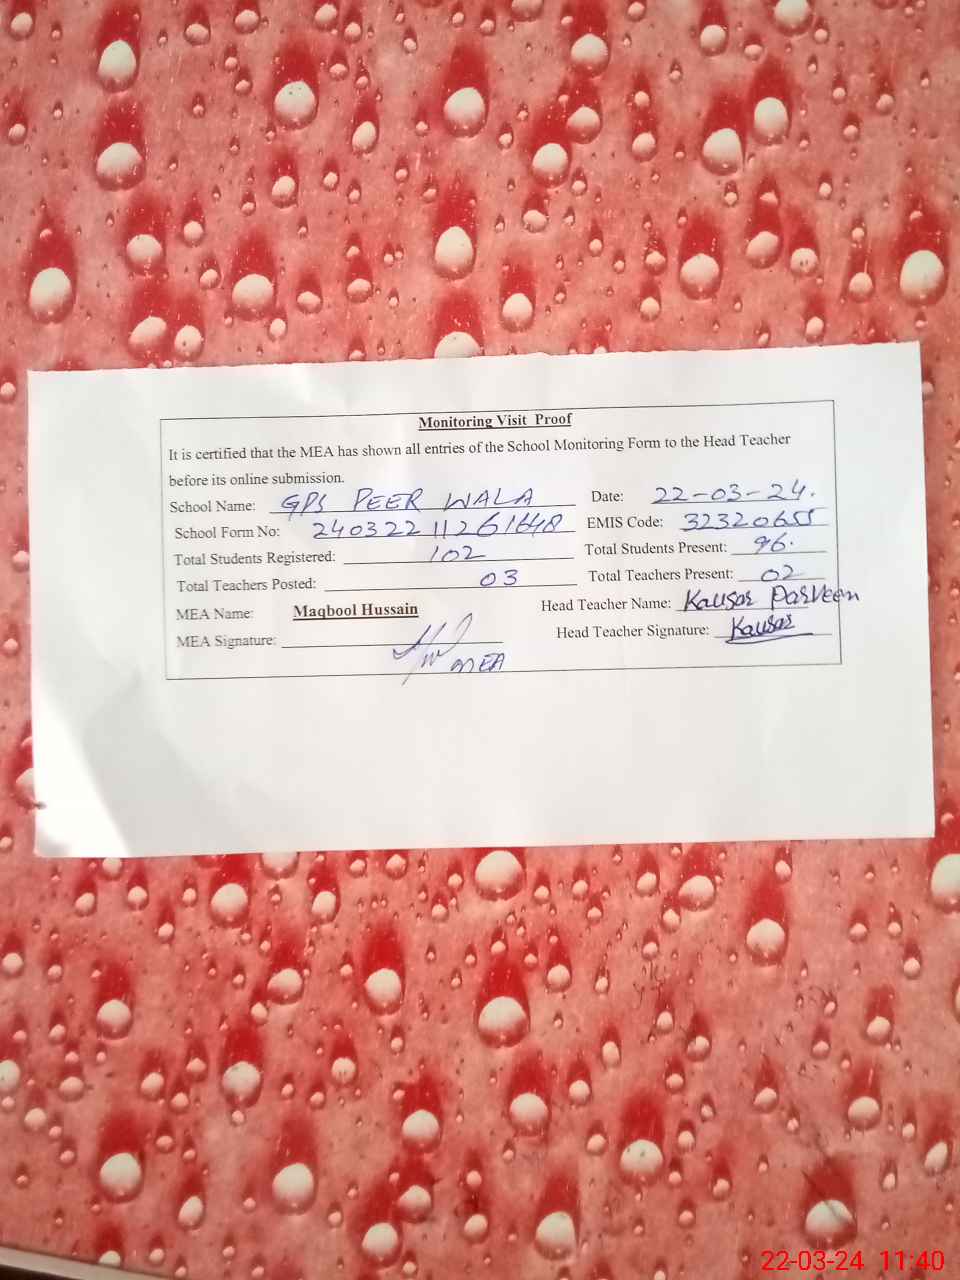 Monitoring Visit Proof
It is certified that the MEA has shown all entries of the School Monitoring Form to the Head Teacher
before its online submission.
School Name: GPS PEER WALA Date: 22-03-24.
School Form No: 24032211261648 EMIS Code: 32320655
Total Students Registered: 102 Total Students Present: 96.
Total Teachers Posted: 03 Total Teachers Present: 02
MEA Name: Maqbool Hussain Head Teacher Name: Kausar Parveen
MEA Signature: Head Teacher Signature: Kausar
MEA
22-03-24 11:40